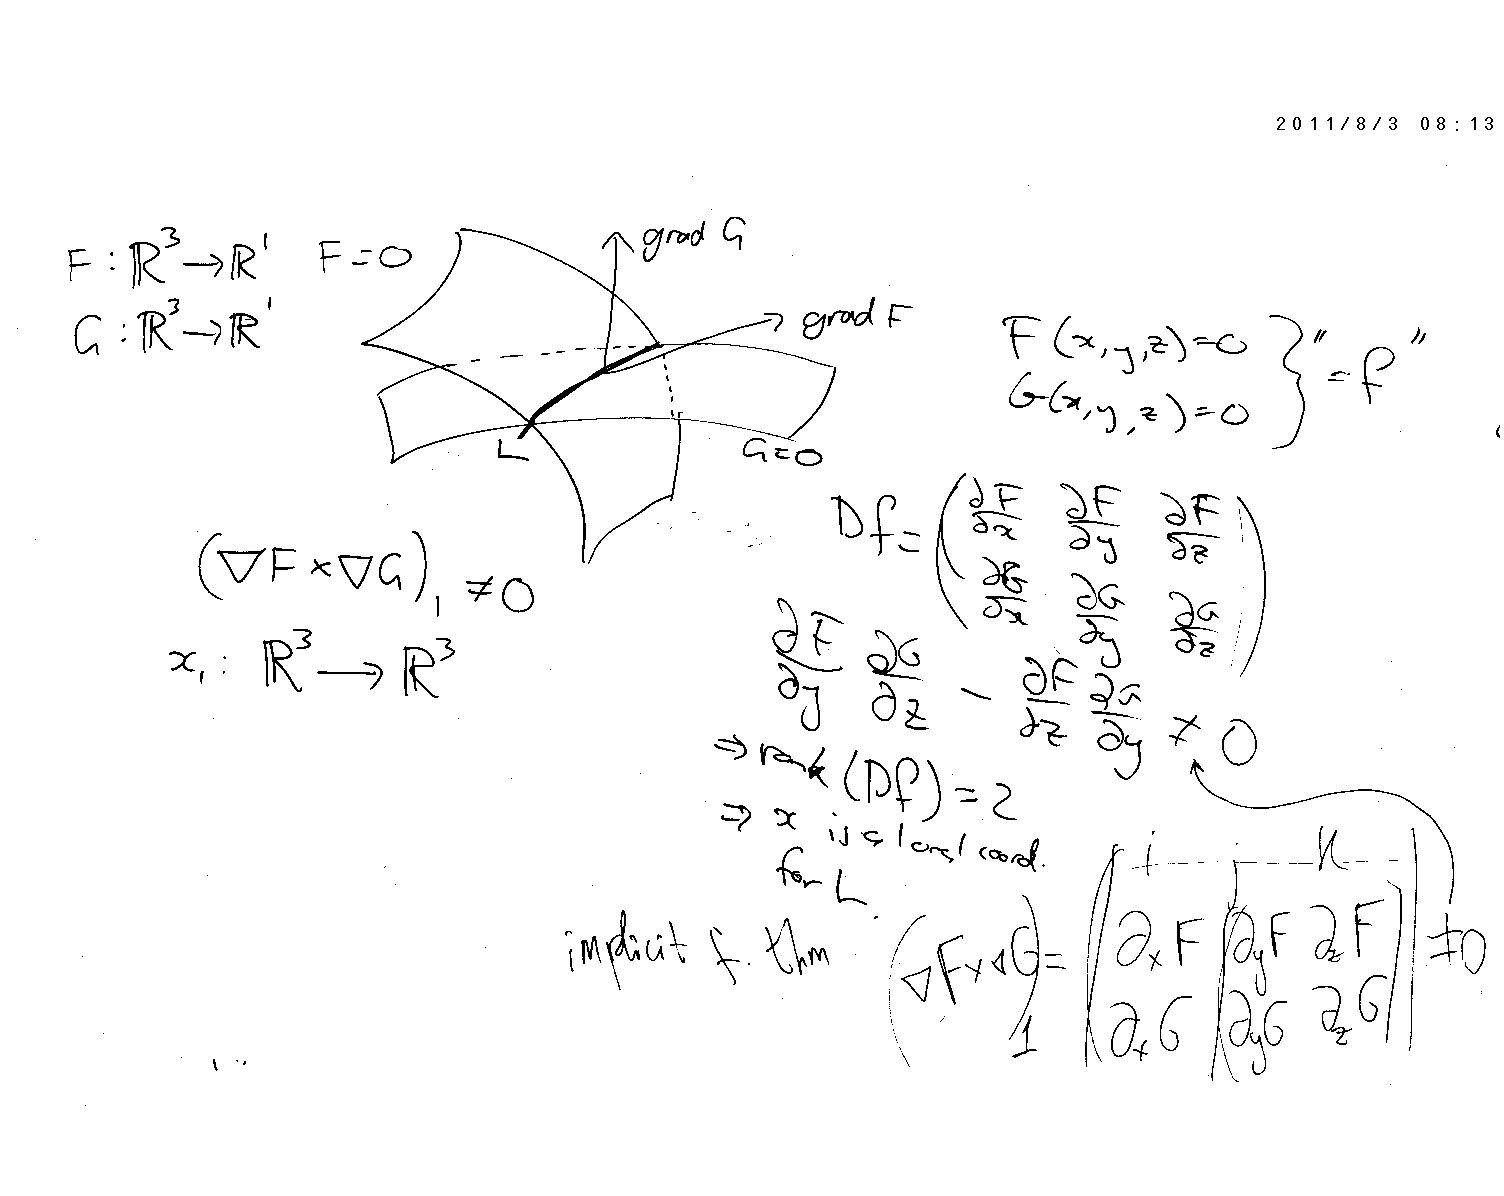 2011/8/3 08:13
F : ℝ³ → ℝ¹
G : ℝ³ → ℝ¹
F = 0
grad G
grad F
L
G = 0
(∇F × ∇G)₁ ≠ 0
x₁ : ℝ³ → ℝ³
F(x, y, z) = 0
G(x, y, z) = 0
} "= f"
Df = ( ∂F/∂x ∂F/∂y ∂F/∂z
∂G/∂x ∂G/∂y ∂G/∂z )
∂F/∂y ∂G/∂z − ∂F/∂z ∂G/∂y ≠ 0
⇒ rank (Df) = 2
⇒ x is a local coord.
for L.
implicit f. thm
(∇F × ∇G)₁ = | i j k
∂ₓF ∂yF ∂zF
∂ₓG ∂yG ∂zG | ≠ 0